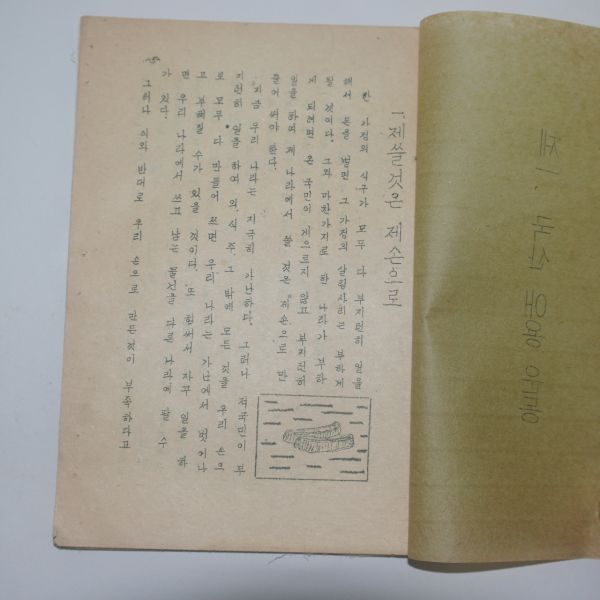 제1. 국산 애용
一. 제쓸것은 제손으로
한 가정의 식구가 모두 다 부지런히 일을
해서 돈을 벌면 그 가정의 살림사리는 부하게
될 것이다. 그와 마찬가지로 한 나라가 부하
게 되려면 온 국민이 게으르지 않고 부지런히
일을 하여 제 나라에서 쓸 것은 제 손으로 만
들어 써야 한다.
지금 우리 나라는 지극히 가난하다. 그러나 적국민이 부
지런히 일을 하여 의 식 주 그 밖에 모든 것을 우리 손으
로 모두 다 만들어 쓰면 우리 나라는 가난에서 벗어나
고 부해질 수가 있을 것이다. 또 힘써서 자꾸 일을 하
면 우리 나라에서 쓰고 남는 물건을 다른 나라에 팔 수
가 있다.
그러나 이와 반대로 우리 손으로 만든것이 부족하다고
5